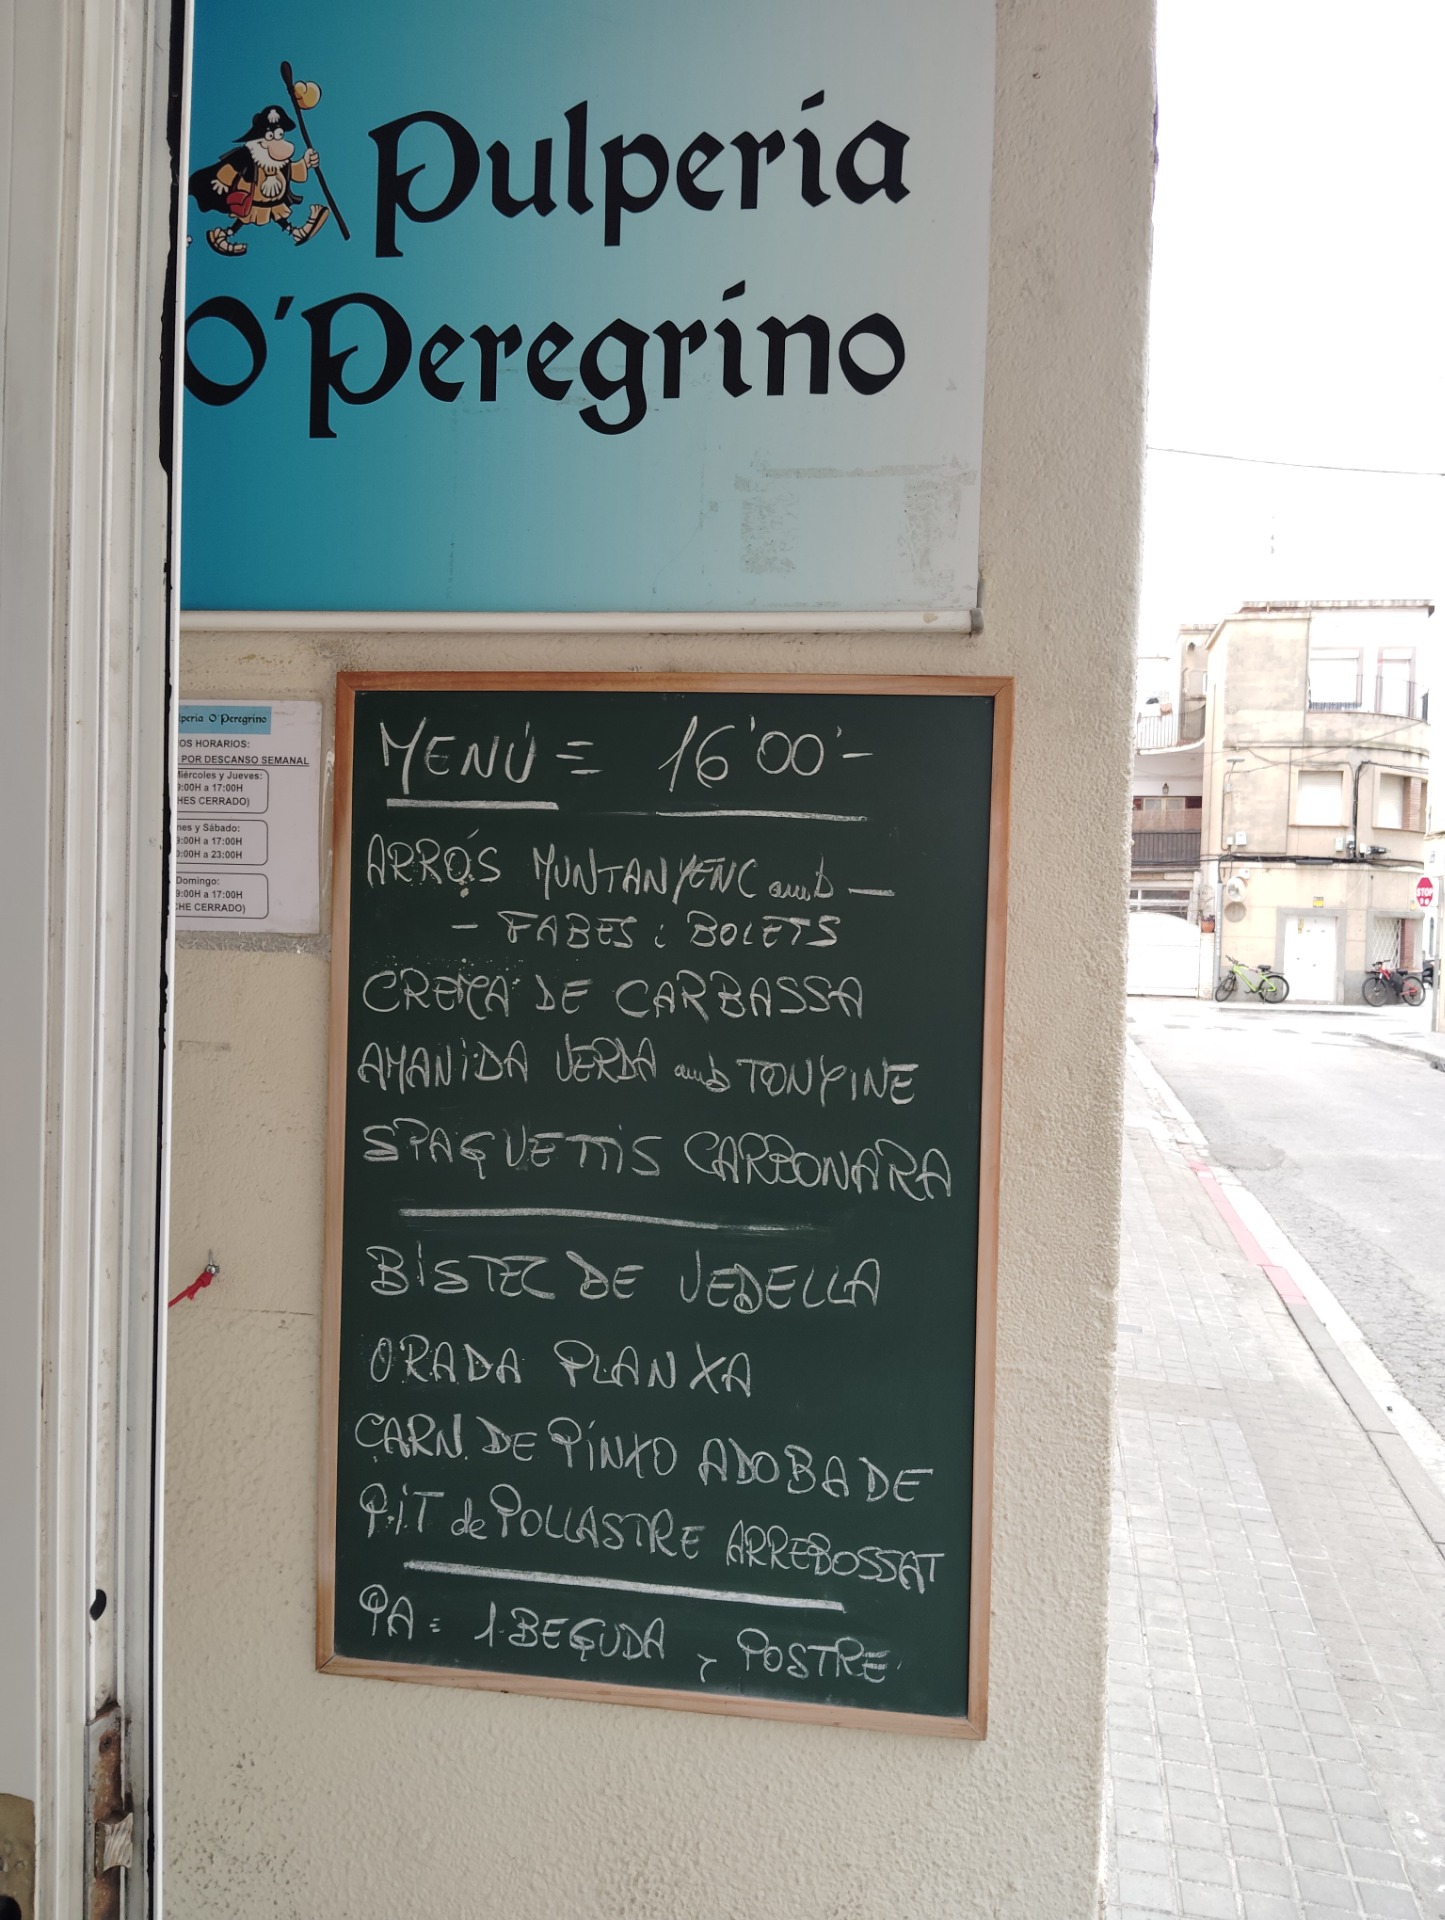 Pulpería
O'Peregrino
lpería O Peregrino
OS HORARIOS:
POR DESCANSO SEMANAL
Miércoles y Jueves:
9:00H a 17:00H
HES CERRADO)
nes y Sábado:
9:00H a 17:00H
0:00H a 23:00H
Domingo:
9:00H a 17:00H
CHE CERRADO)
MENÚ = 16'00'-
ARRÓS MUNTANYENC amb —
- FABES i BOLETS
CREMA DE CARBASSA
AMANIDA VERDA amb TONYINE
SPAGUETTIS CARBONARA
BISTEC DE VEDELLA
ORADA PLANXA
CARN. DE PINXO ADOBADE
PIT de POLLASTRE ARREBOSSAT
PA = 1 BEGUDA y POSTRE
STOP